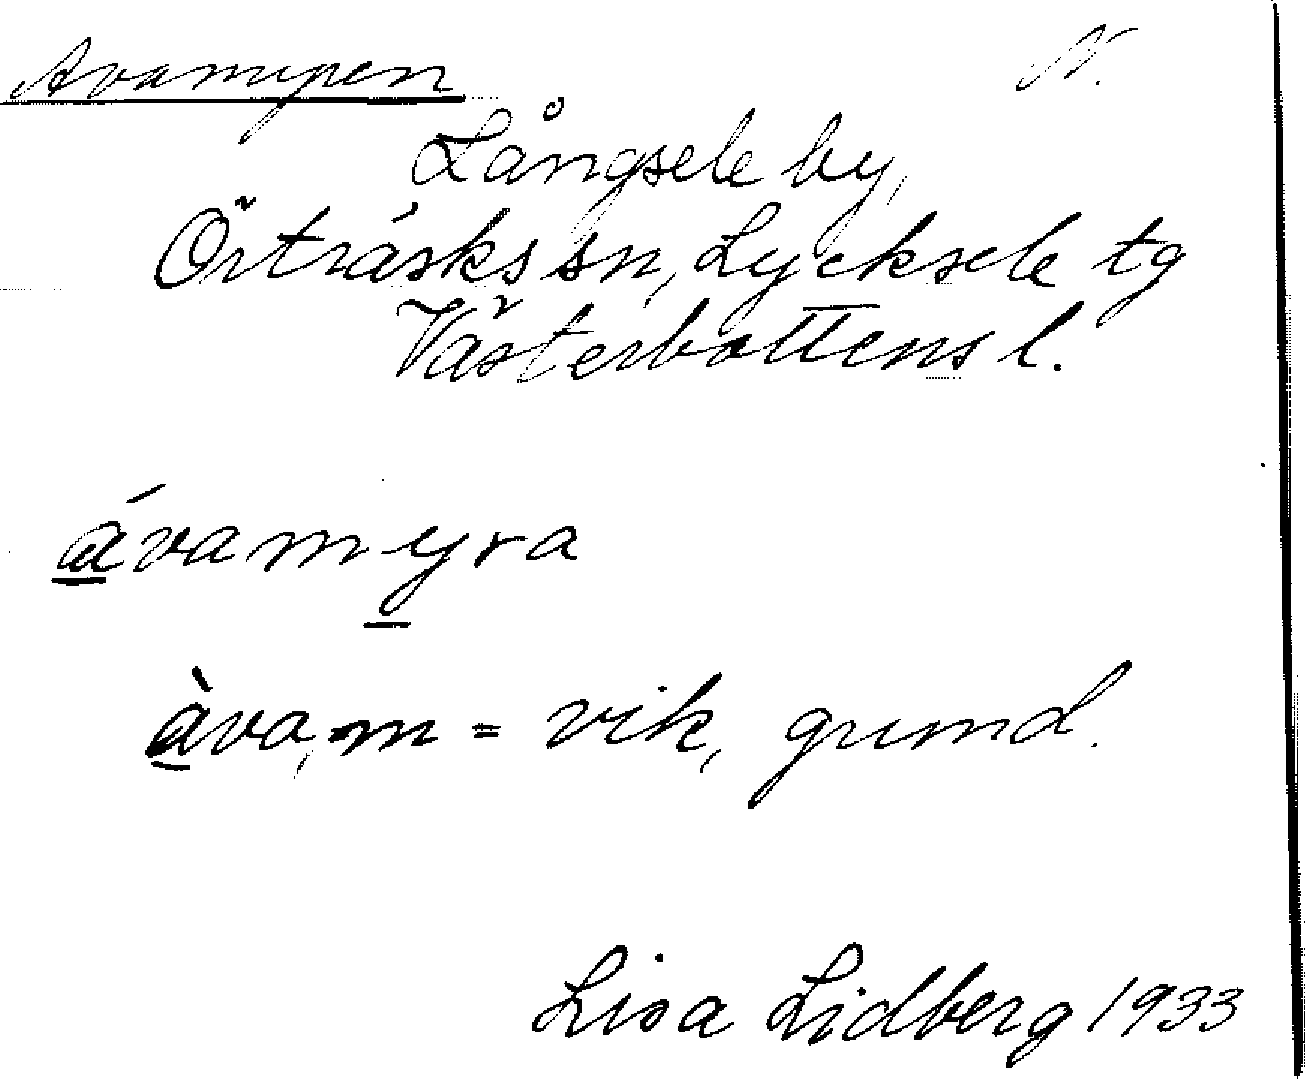 Avamyren N.
Långsele by,
Örträsks sn, Lycksele tg
Västerbottens l.
ávamyra
àva, m = vik, grund.
Lisa Lidberg 1933